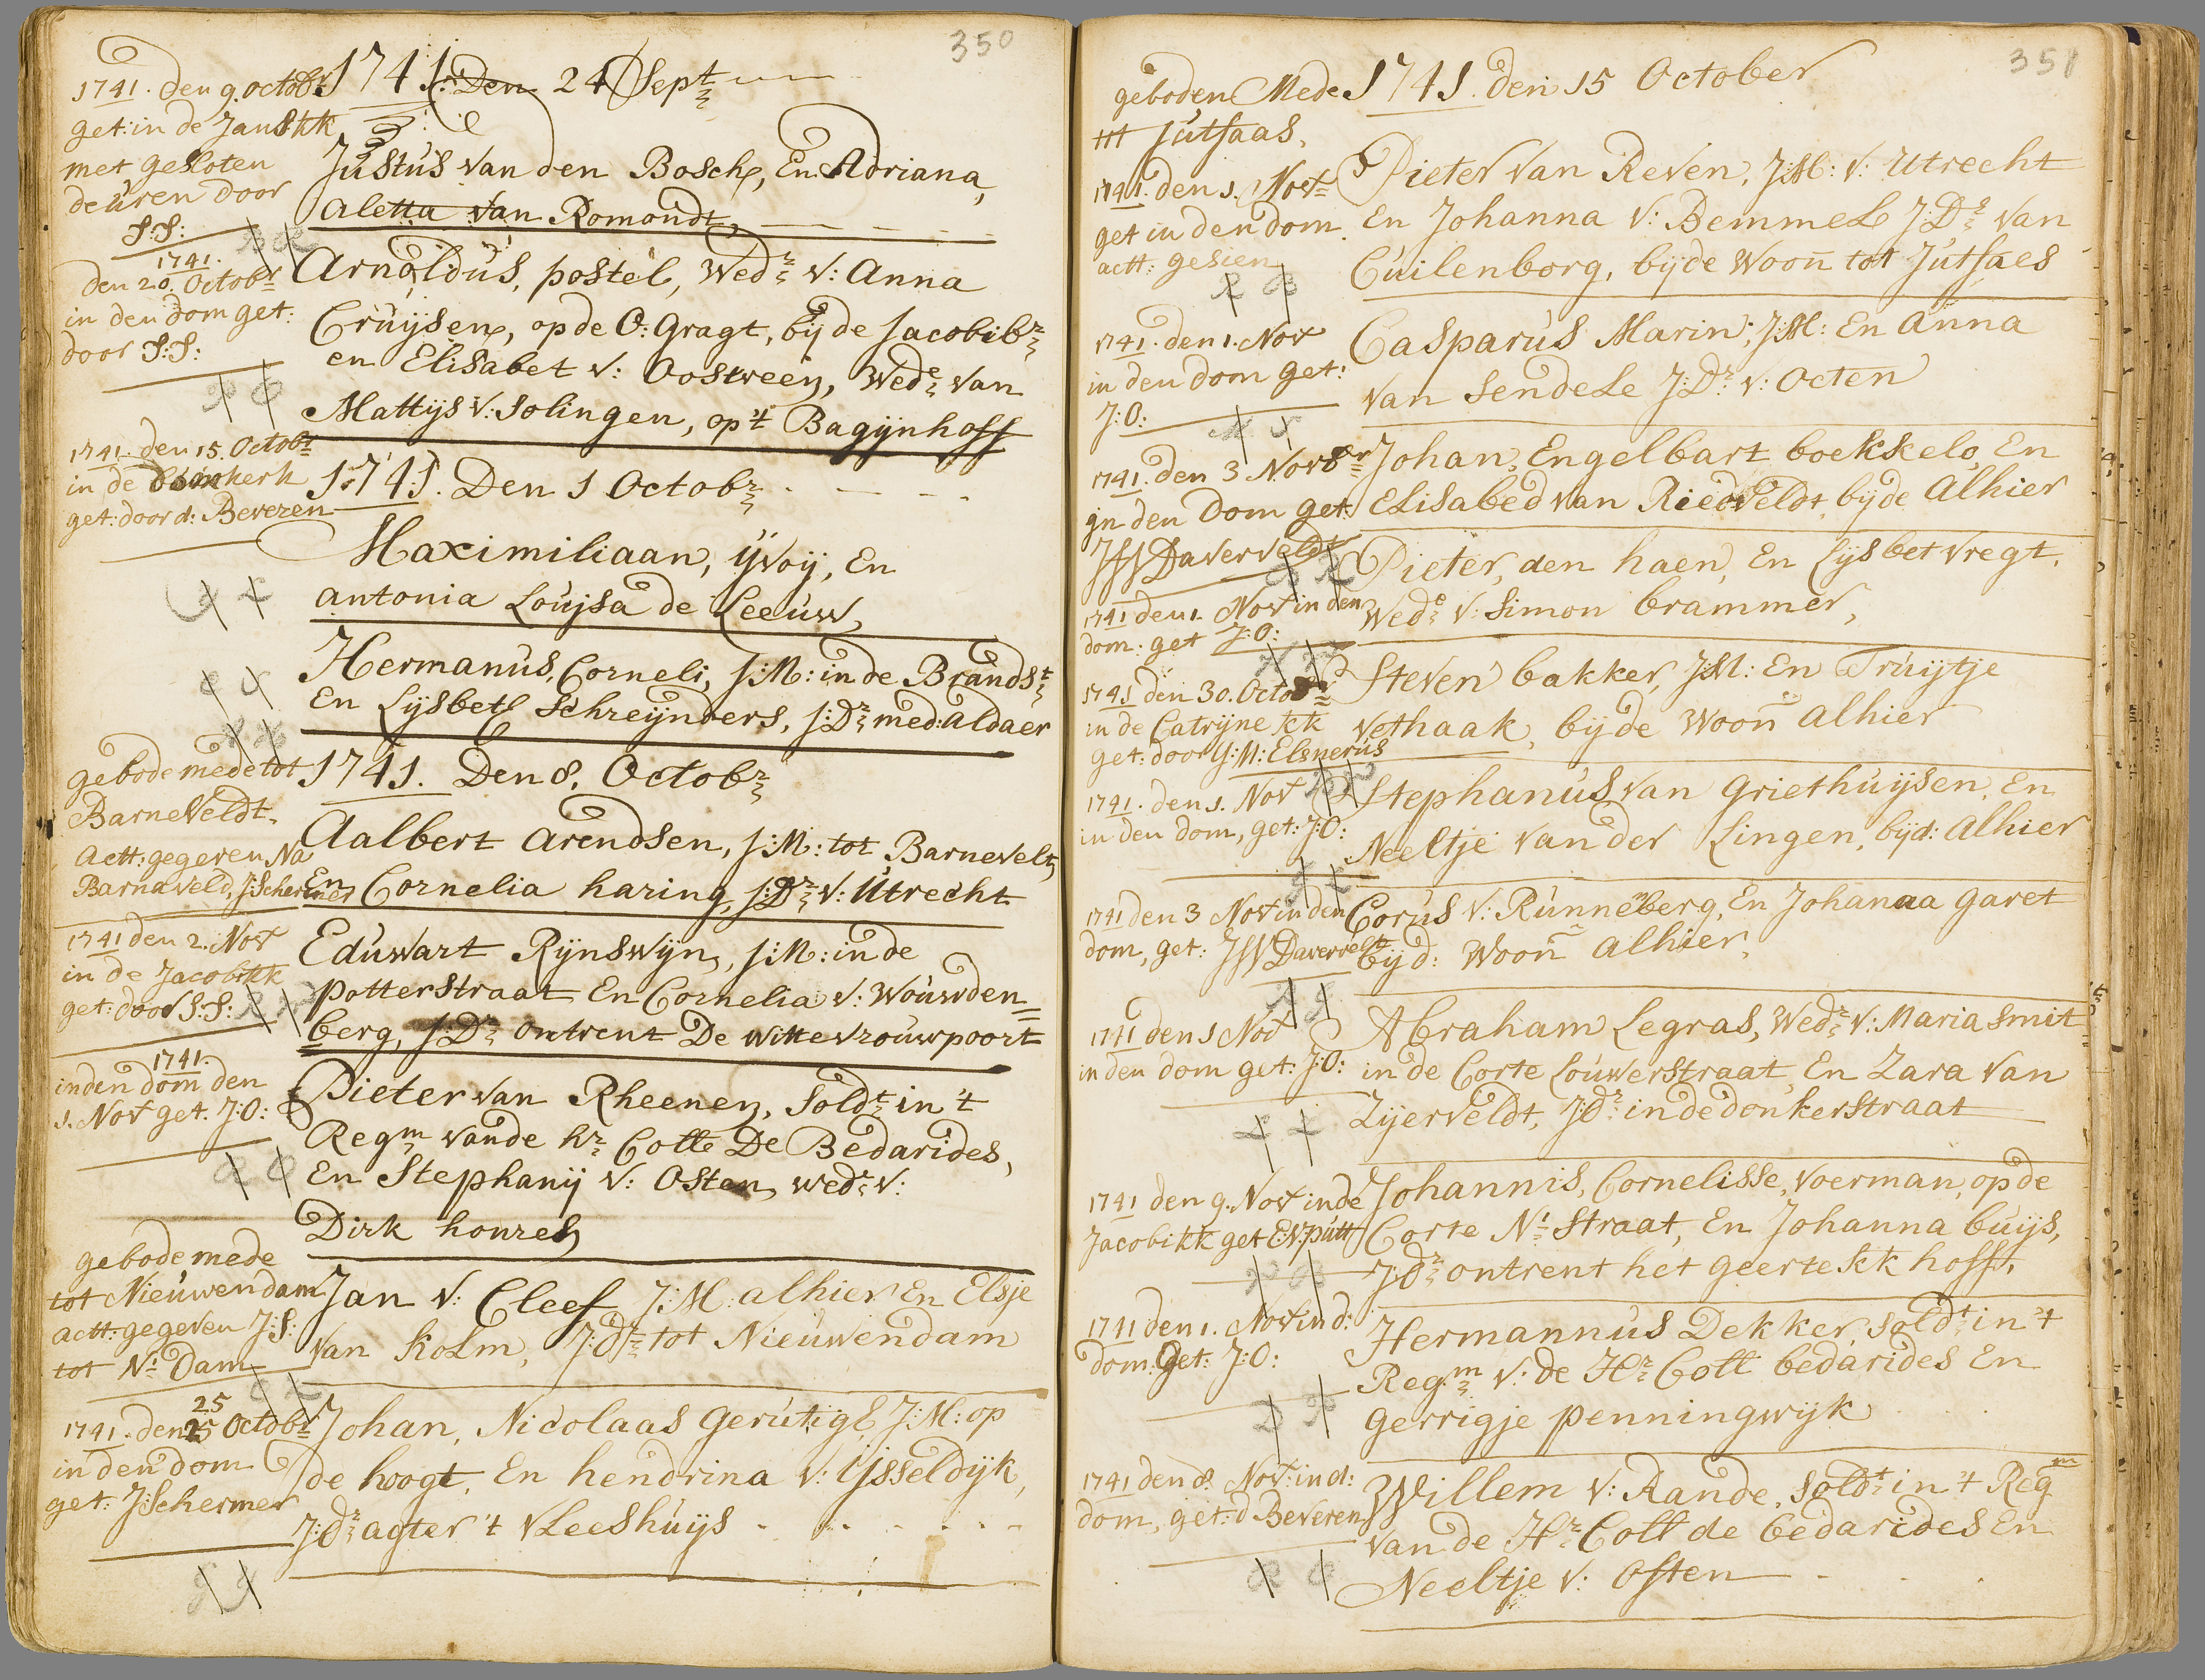 350
1741. Den 24 Sept
1741. den 9. octobr
get: in de Jans kk
met gesloten
deuren door
S:S:
Justus van den Bosch, En Adriana,
Aletta van Romondt
1741.
den 20. Octobr
in den dom get:
door S:S:
Arnoldus, postel, Wedr v: Anna
Cruijsen, op de O: gragt, bij de Jacobibr
en Elisabet v: Oosween, Wede van
Mattijs v: solingen, op 't Bagijnhoff
1741. den 15. Octobr
in de domkerk
get: door d: Beveren
1741. Den 1 Octobr
Maximiliaan, ijvoij, En
antonia Louijsa de Leeuw,
Hermanus, Corneli, J:M: in de Brandst
En Lijsbeth Schreijnders, J:Dr med: aldaer
gebode mede tot
Barneveldt.
Actt: gegeven Na
Barnaveld, J:Schermer
1741. Den 8. Octobr
Aalbert Arendsen, J:M: tot Barnevelt
En Cornelia haring, J:Dr v: Utrecht
1741 den 2. Nov
in de Jacobi kk
get: door S:S:
Eduwart Rijnswijn, J:M: in de
potterstraat En Cornelia v: Wouwden=
berg, J:Dr ontrent De wittevrouwpoort
1741.
in den dom den
1. Nov get. J:O:
Pieter van Rheenen, Soldt in 't
Regm vande hr Cotte De Bedarides,
En Stephanij v: Osten, wedr v:
Dirk honres
gebode mede
tot Nieuwendam
actt: gegeven J:S:
tot N: Dam
Jan v: Cleef J:M: alhier En Elsje
van kolm, J:dr tot Nieuwendam
25
1741. den 25 Octobr
in den dom
get: J:Schermer
Johan, Nicolaas Gerutigh, J:M: op
de hoogt, En hendrina v: ijsseldijk,
J:dr agter 't vleeshuijs
351
geboden Mede
tot Jutfaas,
1741 den 15 October
1741. den 1. Nov
get in den dom.
actt: gesien
Pieter van Reven, J:M: v: Utrecht
En Johanna v: Bemmel J:Dr van
Cuilenborg, bijde woon tot Jutfaes
1741. den 1. Nov
in den dom get:
J:O:
Casparus Marin, J:M: En anna
van Sendele J:Dr v: Octen
1741. den 3 Novbr
in den Dom get:
Daverveldt
Johan, Engelbart boekkelo, En
Elisabed van Riedveldt, bijde Alhier
1741 den 1. Nov in den
dom: get J:O:
Pieter, den haen, En Lijsbet vregt,
Wede v: Simon brammer,
1741 den 30. Octobr
in de Catrijne kk
get: door G:M: Elsnerus
Steven bakker, J:M: En Truijtje
vethaak, bijde woon alhier
1741. den 1. Nov
in den dom, get: J:O:
Stephanus van griethuijsen, En
Neeltje vander Lingen, bijd: alhier
1741 den 3 Nov in den
dom, get: Daverveldt
Corus v: Runneberg, En Johanna garet
bijd: woon alhier,
1741 den 1 Nov
in den dom get: J:O:
Abraham Legras, Wedr v: Maria smit
in de Corte Louwerstraat, En Zara van
Zijerveldt, J:Dr in de donkerstraat
1741 den 9. Nov in de
Jacobikk get E:V: putt
Johannis, Cornelisse, voerman, op de
Corte N: Straat, En Johanna buijs,
J:dr ontrent het geerte kk hoff,
1741 den 1. Nov in d:
dom. Get: J:O:
Hermannus Dekker, soldt in 't
Regm v: de Hr Cott bedarides En
gerrigje penningwijk
1741 den 8. Nov: in d:
dom, get: d Beveren
Willem v: Rande, soldt in 't Regm
van de Hr Cott de bedarides En
Neeltje v: Osten